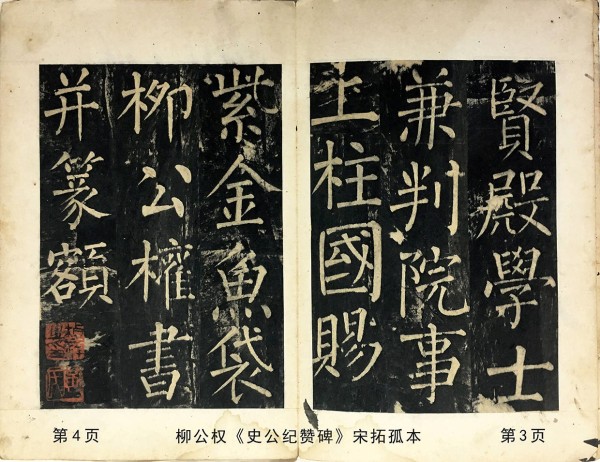 賢殿學士
兼判院事
上柱國賜
紫金魚袋
柳公權書
并篆額
第4页
柳公权《史公纪赞碑》宋拓孤本
第3页